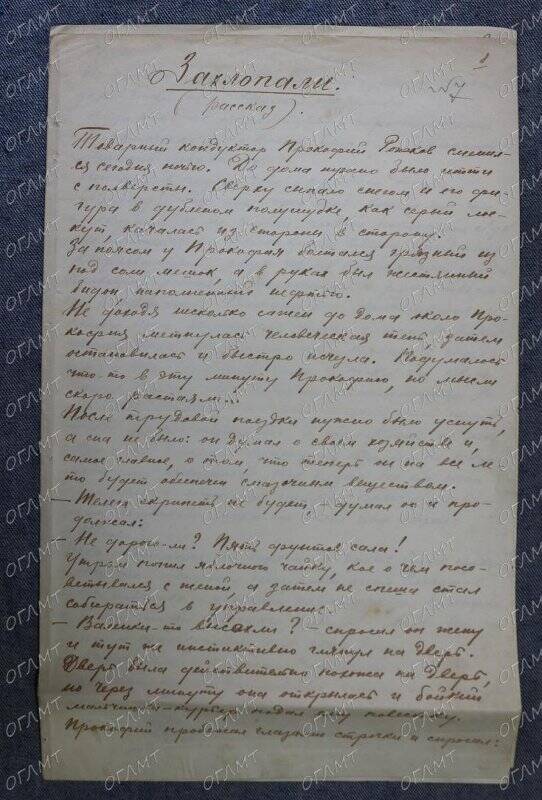 1
Захлопали.
(рассказ).
№7
Товарный кондуктор Прокофий сменил-
ся сегодня ночью. До дома нужно было итти
с полверсты. Сверху сыпало снегом и его фи-
гура в дубленом полушубке, как серый ло-
кут, качалась из стороны в сторону.
За поясом у Прокофия болтался грязный из
под соли мешок, а в руках был жестянный
бидон, наполненный нефтью.
Не доходя несколько сажен до дома около Про-
кофия метнулась человеческая тень, затем
остановилась и быстро исчезла. Подумалось
что-то в эту минуту Прокофию, но мысли
скоро растаяли...
После трудовой поездки нужно было уснуть,
а сна не было: он думал о своем хозяйстве и,
самое главное, о том, что теперь он на все ле
то будет обеспечен смазочным веществом.
— Телега скрипеть не будет — думал он и про-
должал:
— Не дорого-ли? Пять фунтов сала!
Утром попил чайку, кое о чем посо-
ветывался с женой, а затем не спеша стал
собираться в управление.
— Валенки-то высохли? — спросил он жену
и тут же инстиктивно глянул на дверь.
Дверь была действительно похожа на дверь,
но через минуту она открылась и бойкий
мальчишка-курьер подал ему повестку.
Прокофий пробежал глазами строчки и спросил:
ОГЛМТ